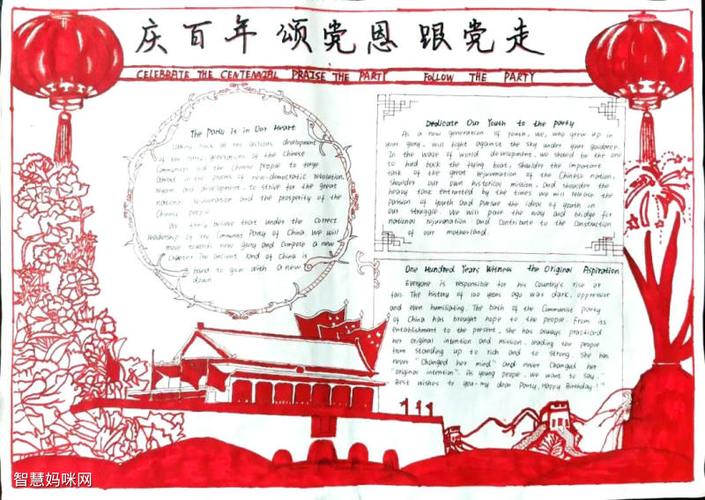 庆百年 颂党恩 跟党走
CELEBRATE THE CENTENNIAL PRAISE THE PARTY FOLLOW THE PARTY
The Party is in Our Heart
Looking back at the
of the Chinese
Communist and the Chinese people to
of new-democratic revolution
and development, to strive for the great
national rejuvenation and the prosperity of the
Chinese people
believe that under the correct
leadership of the Communist Party of China we will
move towards new and compose a new
chapter The ancient land of China is
a new
dawn
Dedicate Our Youth to the party
As a new generation of youth, we, who grew up in
will fight against the sky under your guidance.
In the wave of world development, we stand to the
to hold back the flying boat, Shoulder the important
task of the great rejuvenation of the Chinese nation,
Shoulder our own historical mission, and shoulder the
heavy task entrusted by the times we will the
passion of youth and pursue the ideal of youth in
our struggle. We will pave the way and bridge for
national rejuvenation and contribute to the construction
of our motherland.
One Hundred Years Witness the Original Aspiration
Everyone is responsible for his Country's rise or
fall. The history of 100 years ago was dark, oppressive
and even humiliating. The birth of the Communist party
of China has brought hope to the people. From its
establishment to the present, She has always practiced
her original intention and mission, leading the people
from standing up to rich and to strong. She has
never "changed her mind" and never changed her
"original intention". As young people, we want to say,
Best wishes to you my dear Party, Happy Birthday!
智慧妈咪网